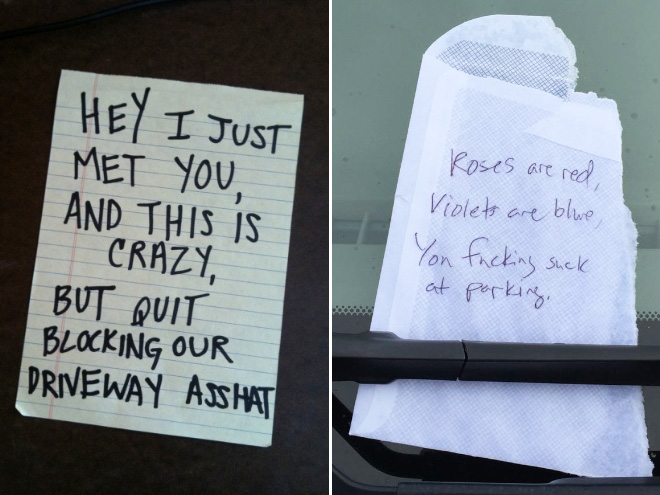 HEY I JUST
MET YOU,
AND THIS IS
CRAZY,
BUT QUIT
BLOCKING OUR
DRIVEWAY ASSHAT
Roses are red,
Violets are blue,
You fucking suck
at parking.